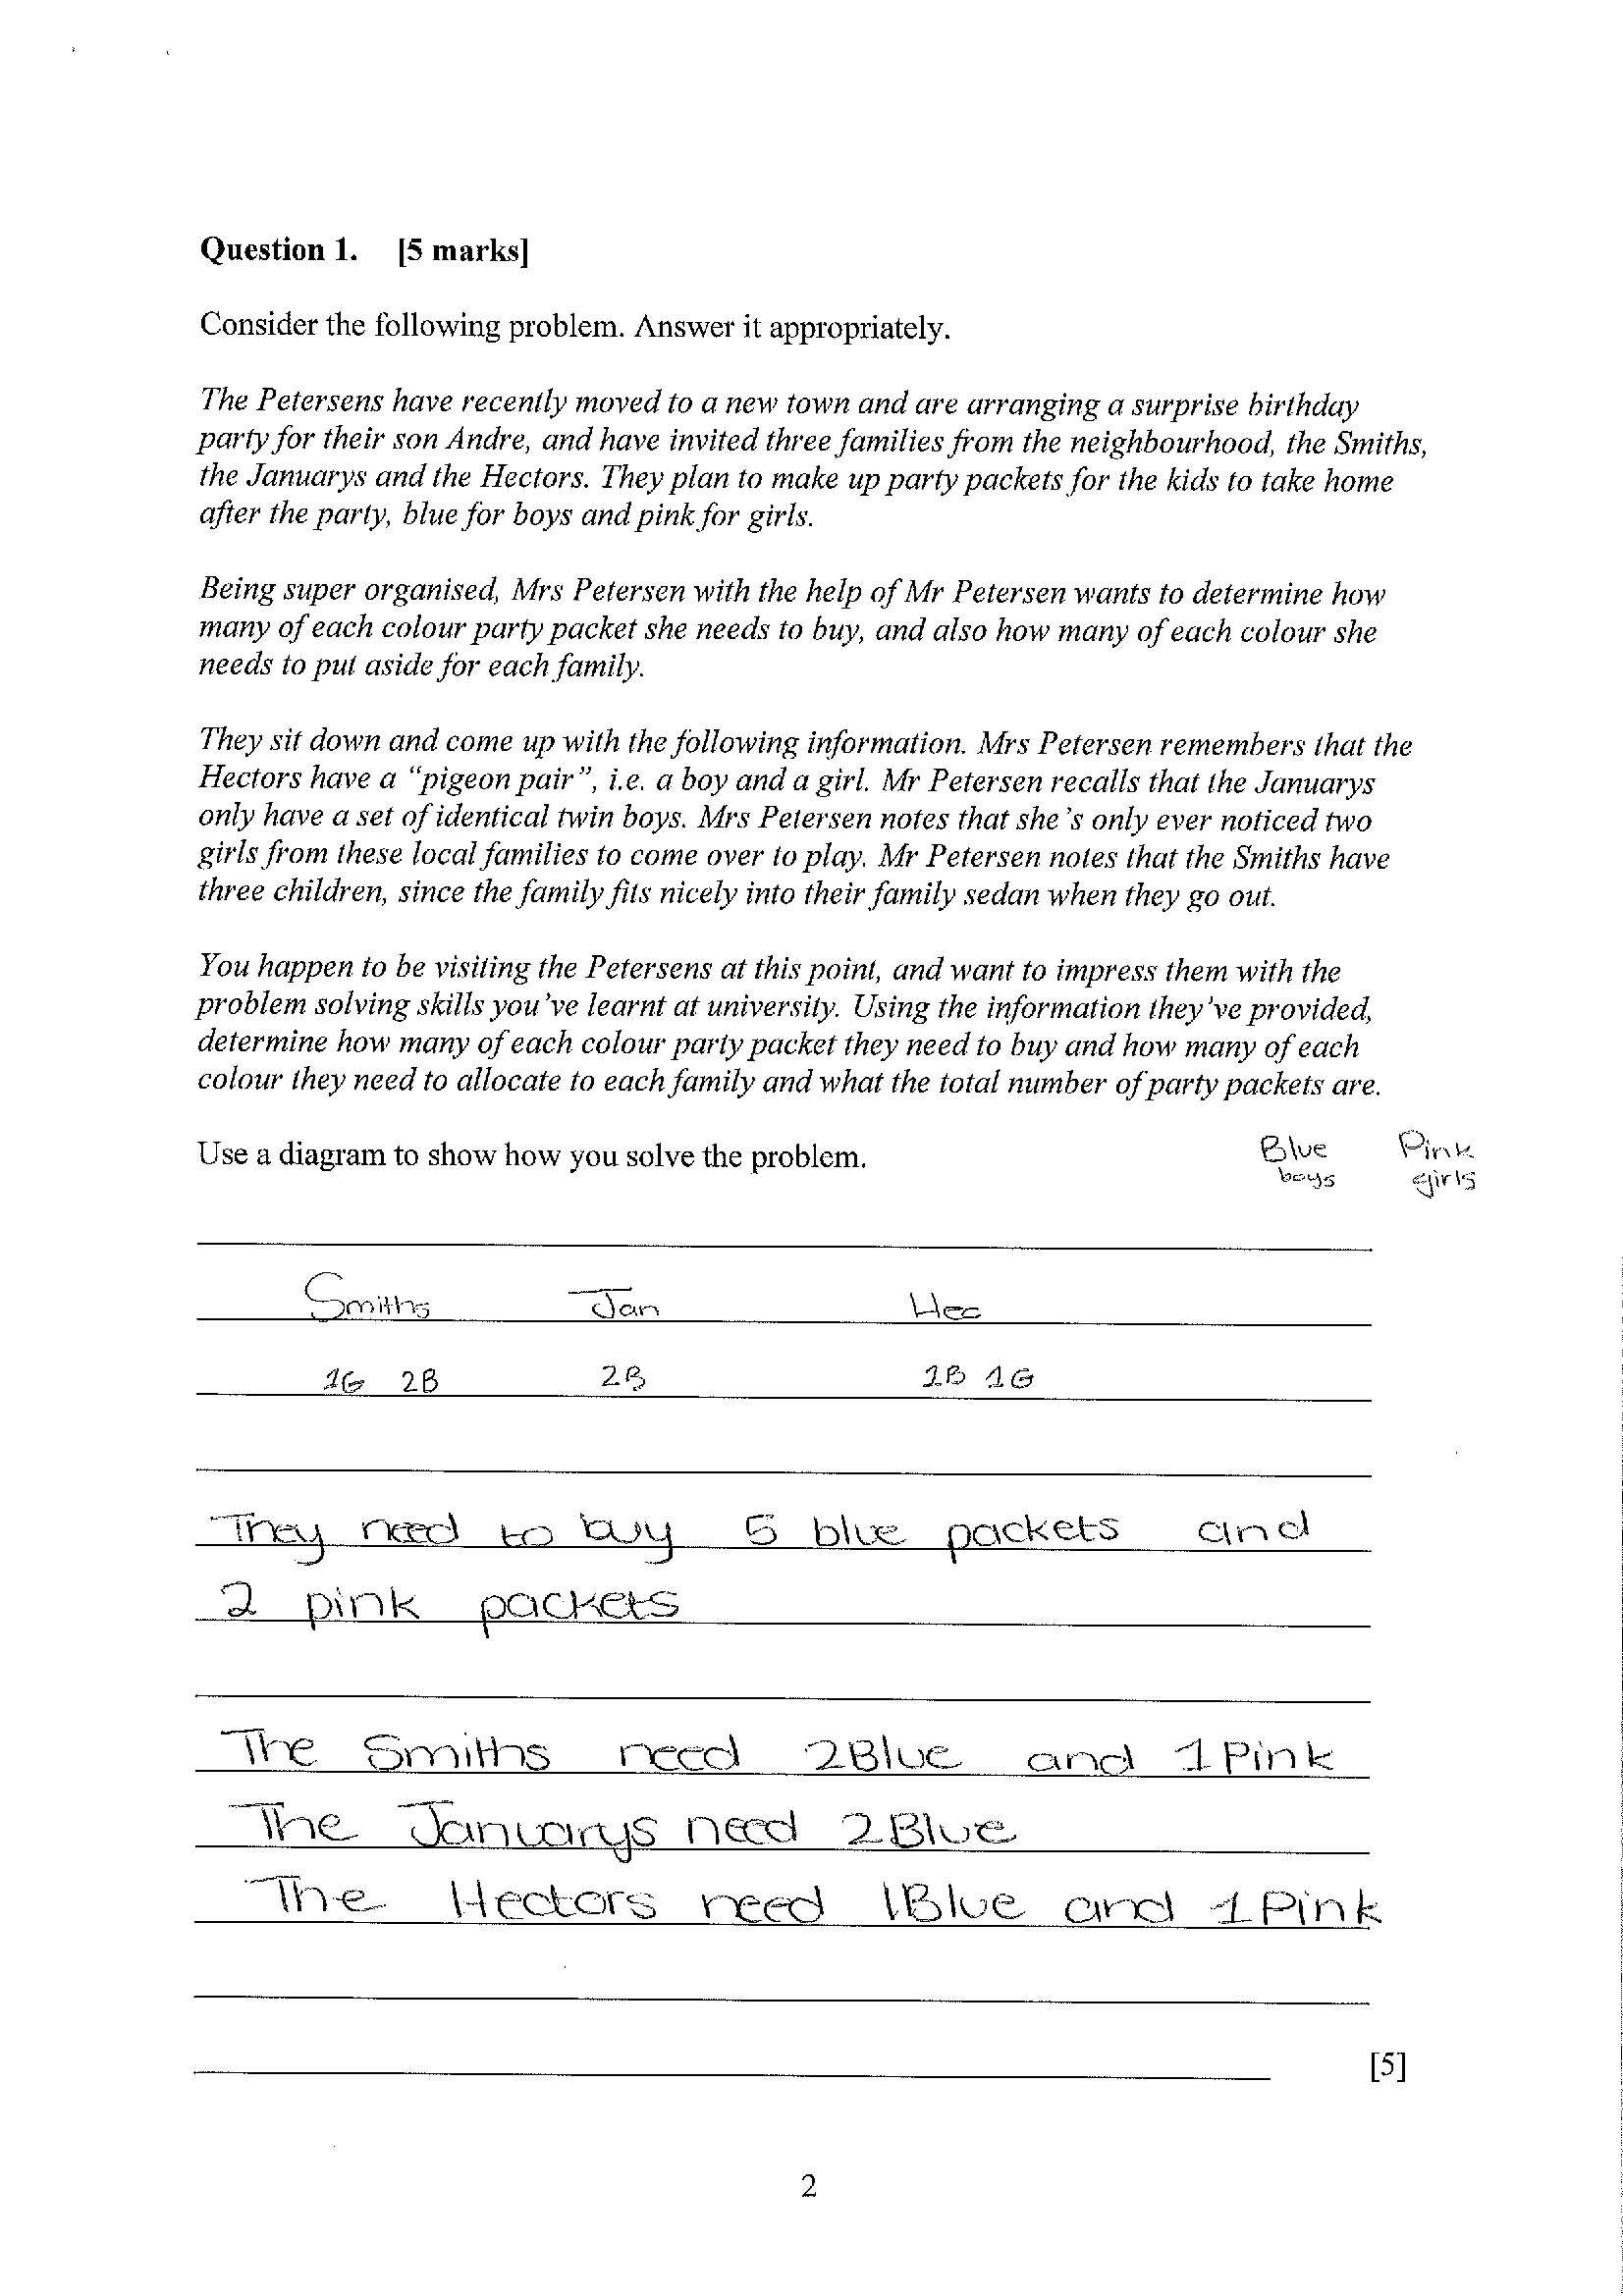 Question 1. [5 marks]
Consider the following problem. Answer it appropriately.
The Petersens have recently moved to a new town and are arranging a surprise birthday
party for their son Andre, and have invited three families from the neighbourhood, the Smiths,
the Januarys and the Hectors. They plan to make up party packets for the kids to take home
after the party, blue for boys and pink for girls.
Being super organised, Mrs Petersen with the help of Mr Petersen wants to determine how
many of each colour party packet she needs to buy, and also how many of each colour she
needs to put aside for each family.
They sit down and come up with the following information. Mrs Petersen remembers that the
Hectors have a “pigeon pair”, i.e. a boy and a girl. Mr Petersen recalls that the Januarys
only have a set of identical twin boys. Mrs Petersen notes that she's only ever noticed two
girls from these local families to come over to play. Mr Petersen notes that the Smiths have
three children, since the family fits nicely into their family sedan when they go out.
You happen to be visiting the Petersens at this point, and want to impress them with the
problem solving skills you've learnt at university. Using the information they've provided,
determine how many of each colour party packet they need to buy and how many of each
colour they need to allocate to each family and what the total number of party packets are.
Use a diagram to show how you solve the problem.
Blue Pink
boys girls
Smiths Jan Hec
1G 2B 2B 1B 1G
They need to buy 5 blue packets and
2 pink packets
The Smiths need 2Blue and 1 Pink
The Januarys need 2Blue
The Hectors need 1Blue and 1 Pink
[5]
2